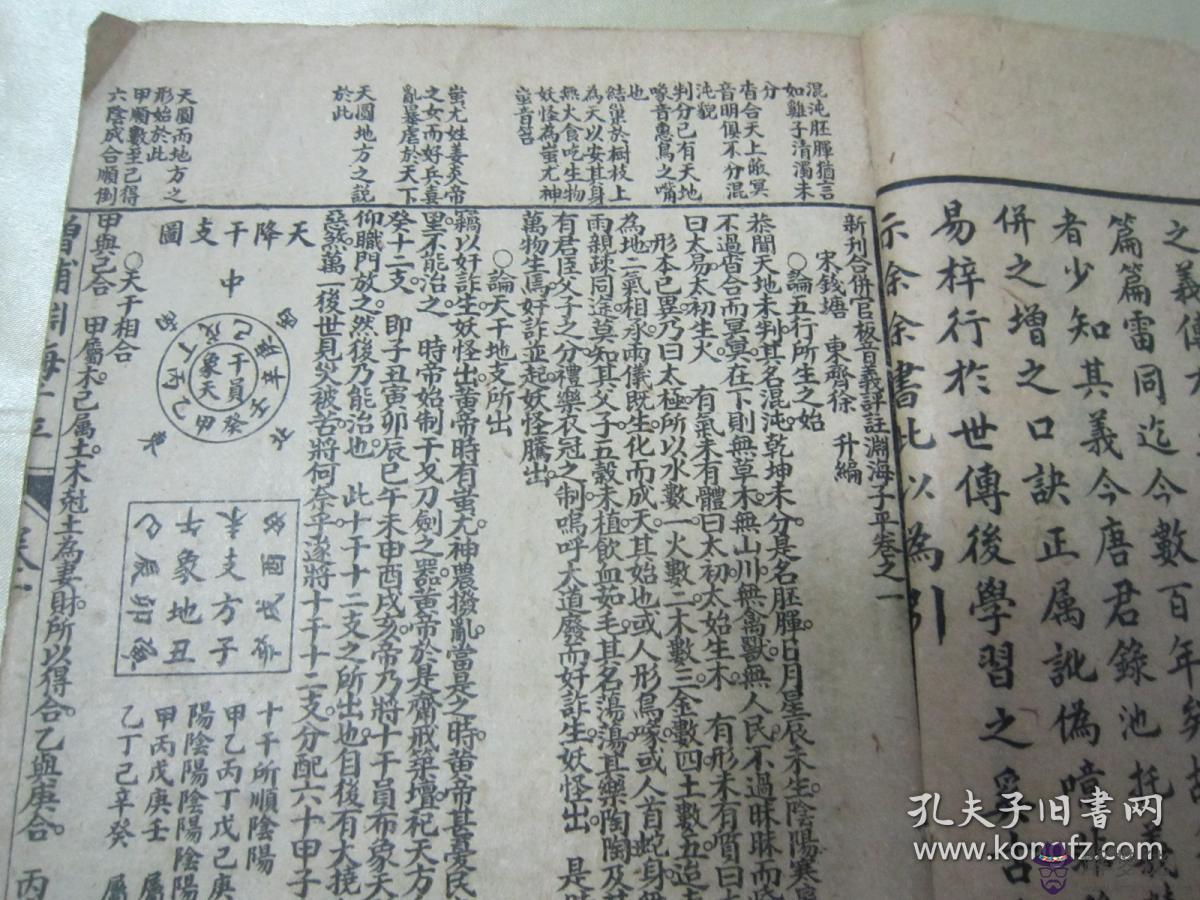 之義傳
篇篇雷同迄今數百年矣
者少知其義今唐君錄池托
併之增之口訣正属訛偽
易梓行於世傳後學習之
示余余書此以為引
混沌胚腪猶言
如雞子清濁未
分
沓合天上敝冥
音明俱不分混
沌貌
判分已有天地
喙音惠鳥之嘴
也
結巢於樹枝上
為天以安其身
無火食吃生物
妖怪為蚩尤神
蚩音笞
蚩尤姓姜炎帝
之女而好兵喜
亂暴虐於天下
天圓地方之說
於此
天圓而地方之
形始於此
甲順數至己得
六陰成合順倒
新刊合併官板音義評註淵海子平卷之一
宋錢塘 東齋徐 升編
○論五行所生之始
恭聞天地未判其名混沌乾坤未分是名胚腪日月星辰未生陰陽寒
不過沓合而冥冥在下則無草木無山川無禽獸無人民不過昧昧而
曰太易太初生火 有氣未有體曰太初太始生木 有形未有質曰
形本已異乃曰太極所以水數一火數二木數三金數四土數五
為地二氣相承兩儀既生化而成天其始也或人形鳥喙或人首蛇身
雨親疎同途莫知其父子五穀未植飲血茹毛其名湯湯其樂陶陶及
有君臣父子之分禮樂衣冠之制嗚呼大道廢而奸詐生妖怪出 是
萬物生焉奸詐並起妖怪騰出
○論天干地支所出
竊以奸詐生妖怪出黃帝時有蚩尤神農撥亂當是之時黃帝甚憂民
里不能治之 時帝始制干戈刀劍之器黃帝於是齋戒築壇祀天方
癸十二支 即子丑寅卯辰巳午未申酉戌亥帝乃將十干員布象天
仰職門放之然後乃能治也 此十干十二支之所出也自後有大撓
惡煞萬一後世見災被苦將何奈乎遂將十干十二支分配六十甲子
天降干支圖
中
北
干員
象天
甲
乙
丙
丁
戊
己
庚
辛
壬
癸
支方
象地
子
丑
寅
卯
辰
巳
午
未
申
酉
戌
亥
十干所順陰陽
甲乙丙丁戊己庚
陽陰陽陰陽陰陽
甲丙戊庚壬 屬
乙丁己辛癸 屬
○天干相合
甲與己合 甲屬木己属土木尅土為妻財所以得合乙與庚合 丙
增補淵海子平
卷一
孔夫子旧书网
www.kongfz.com